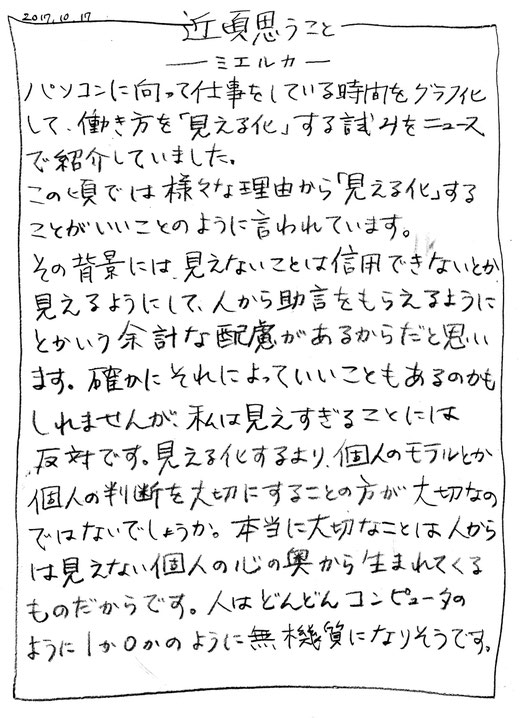 2017.10.17
近頃思うこと
―ミエルカ―
パソコンに向って仕事をしている時間をグラフ化
して、働き方を「見える化」する試みをニュース
で紹介していました。
この頃では様々な理由から「見える化」する
ことがいいことのように言われています。
その背景には、見えないことは信用できないとか
見えるようにして、人から助言をもらえるように
とかいう余計な配慮があるからだと思い
ます。確かにそれによっていいこともあるのかも
しれませんが、私は見えすぎることには
反対です。見える化するより、個人のモラルとか
個人の判断を大切にすることの方が大切なの
ではないでしょうか。本当に大切なことは人から
は見えない個人の心の奥から生まれてくる
ものだからです。人はどんどんコンピュータの
ように1か0かのように無機質になりそうです。